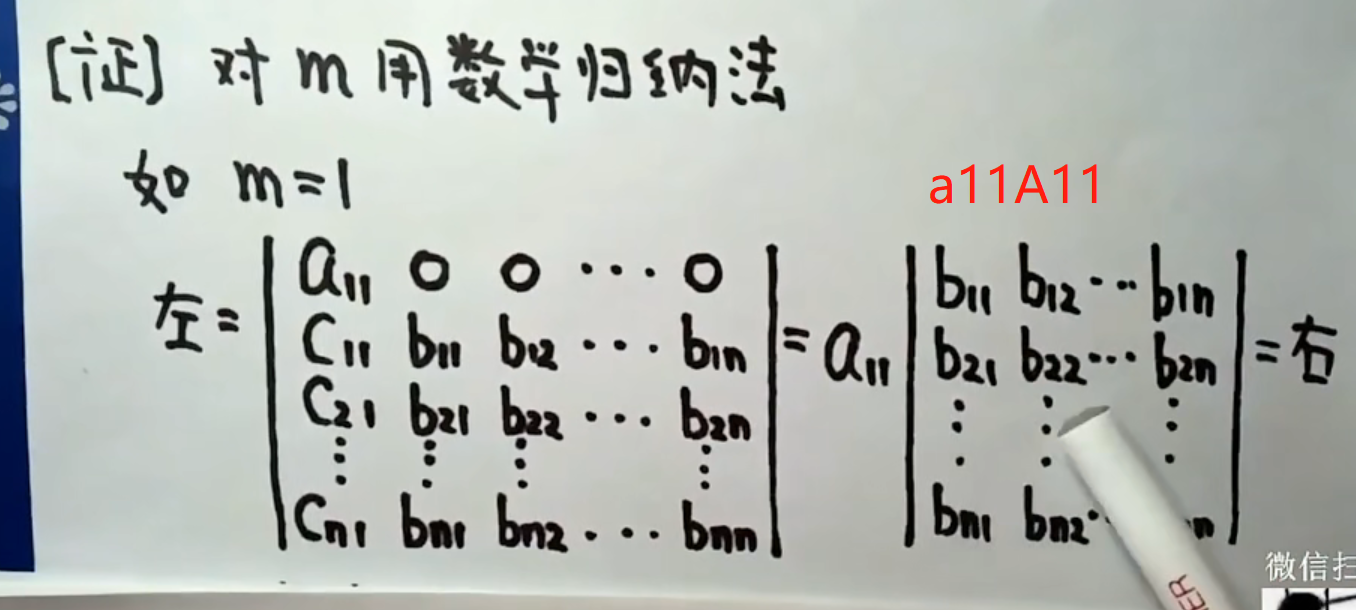 [证] 对 m 用数学归纳法
如 m=1
a11A11
左= | a₁₁ 0 0 ⋯ 0 | = a₁₁ | b₁₁ b₁₂ ⋯ b₁n | =右
c₁₁ b₁₁ b₁₂ ⋯ b₁n
c₂₁ b₂₁ b₂₂ ⋯ b₂n
⋮ ⋮ ⋮ ⋮
cn₁ bn₁ bn₂ ⋯ bnn
b₂₁ b₂₂ ⋯ b₂n
⋮ ⋮ ⋮
bn₁ bn₂ ⋯ n
微信扫
ER